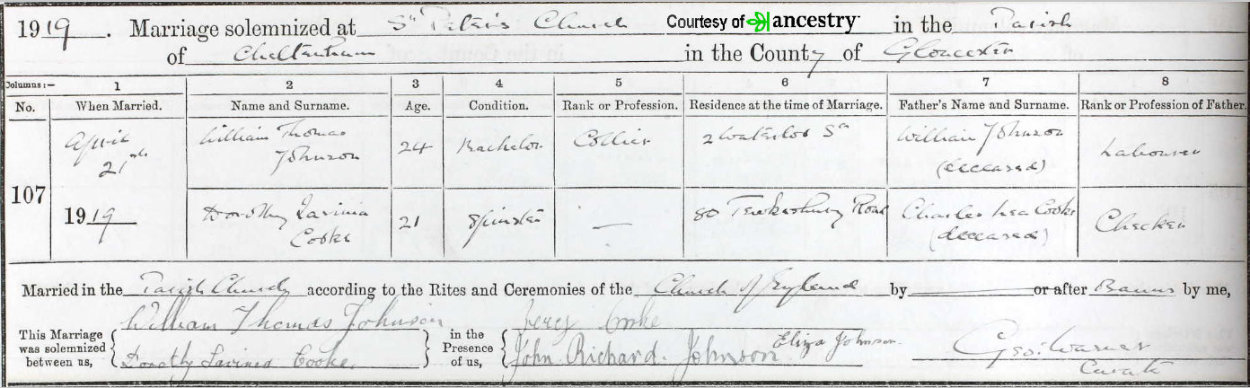 1919. Marriage solemnized at St Peter's Church Courtesy of ancestry in the Parish
of Cheltenham in the County of Gloucester
Columns:— 1 2 3 4 5 6 7 8
No. When Married. Name and Surname. Age. Condition. Rank or Profession. Residence at the time of Marriage. Father's Name and Surname. Rank or Profession of Father.
107
April 21st 1919
William Thomas Johnson 24 Bachelor Collier 2 Waterloo St William Johnson (deceased) Labourer
Dorothy Lavinia Cooke 21 Spinster — 80 Tewkesbury Road Charles Lea Cooke (deceased) Checker
Married in the Parish Church according to the Rites and Ceremonies of the Church of England by or after Banns by me,
This Marriage was solemnized between us, William Thomas Johnson Dorothy Lavinia Cooke
in the Presence of us, Percy Cooke John Richard Johnson Eliza Johnson
Geo. Warner
Curate